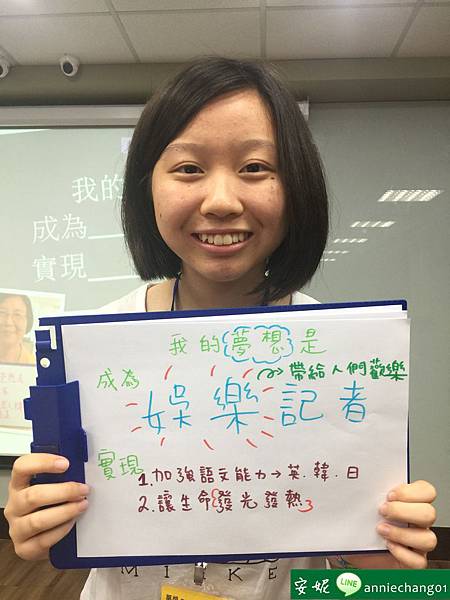 我的
成為
實現
我的夢想是
成為
帶給人們歡樂
娛樂記者
實現
1.加強語文能力→英.韓.日
2.讓生命發光發熱
M I K E
安妮 LINE anniechang01